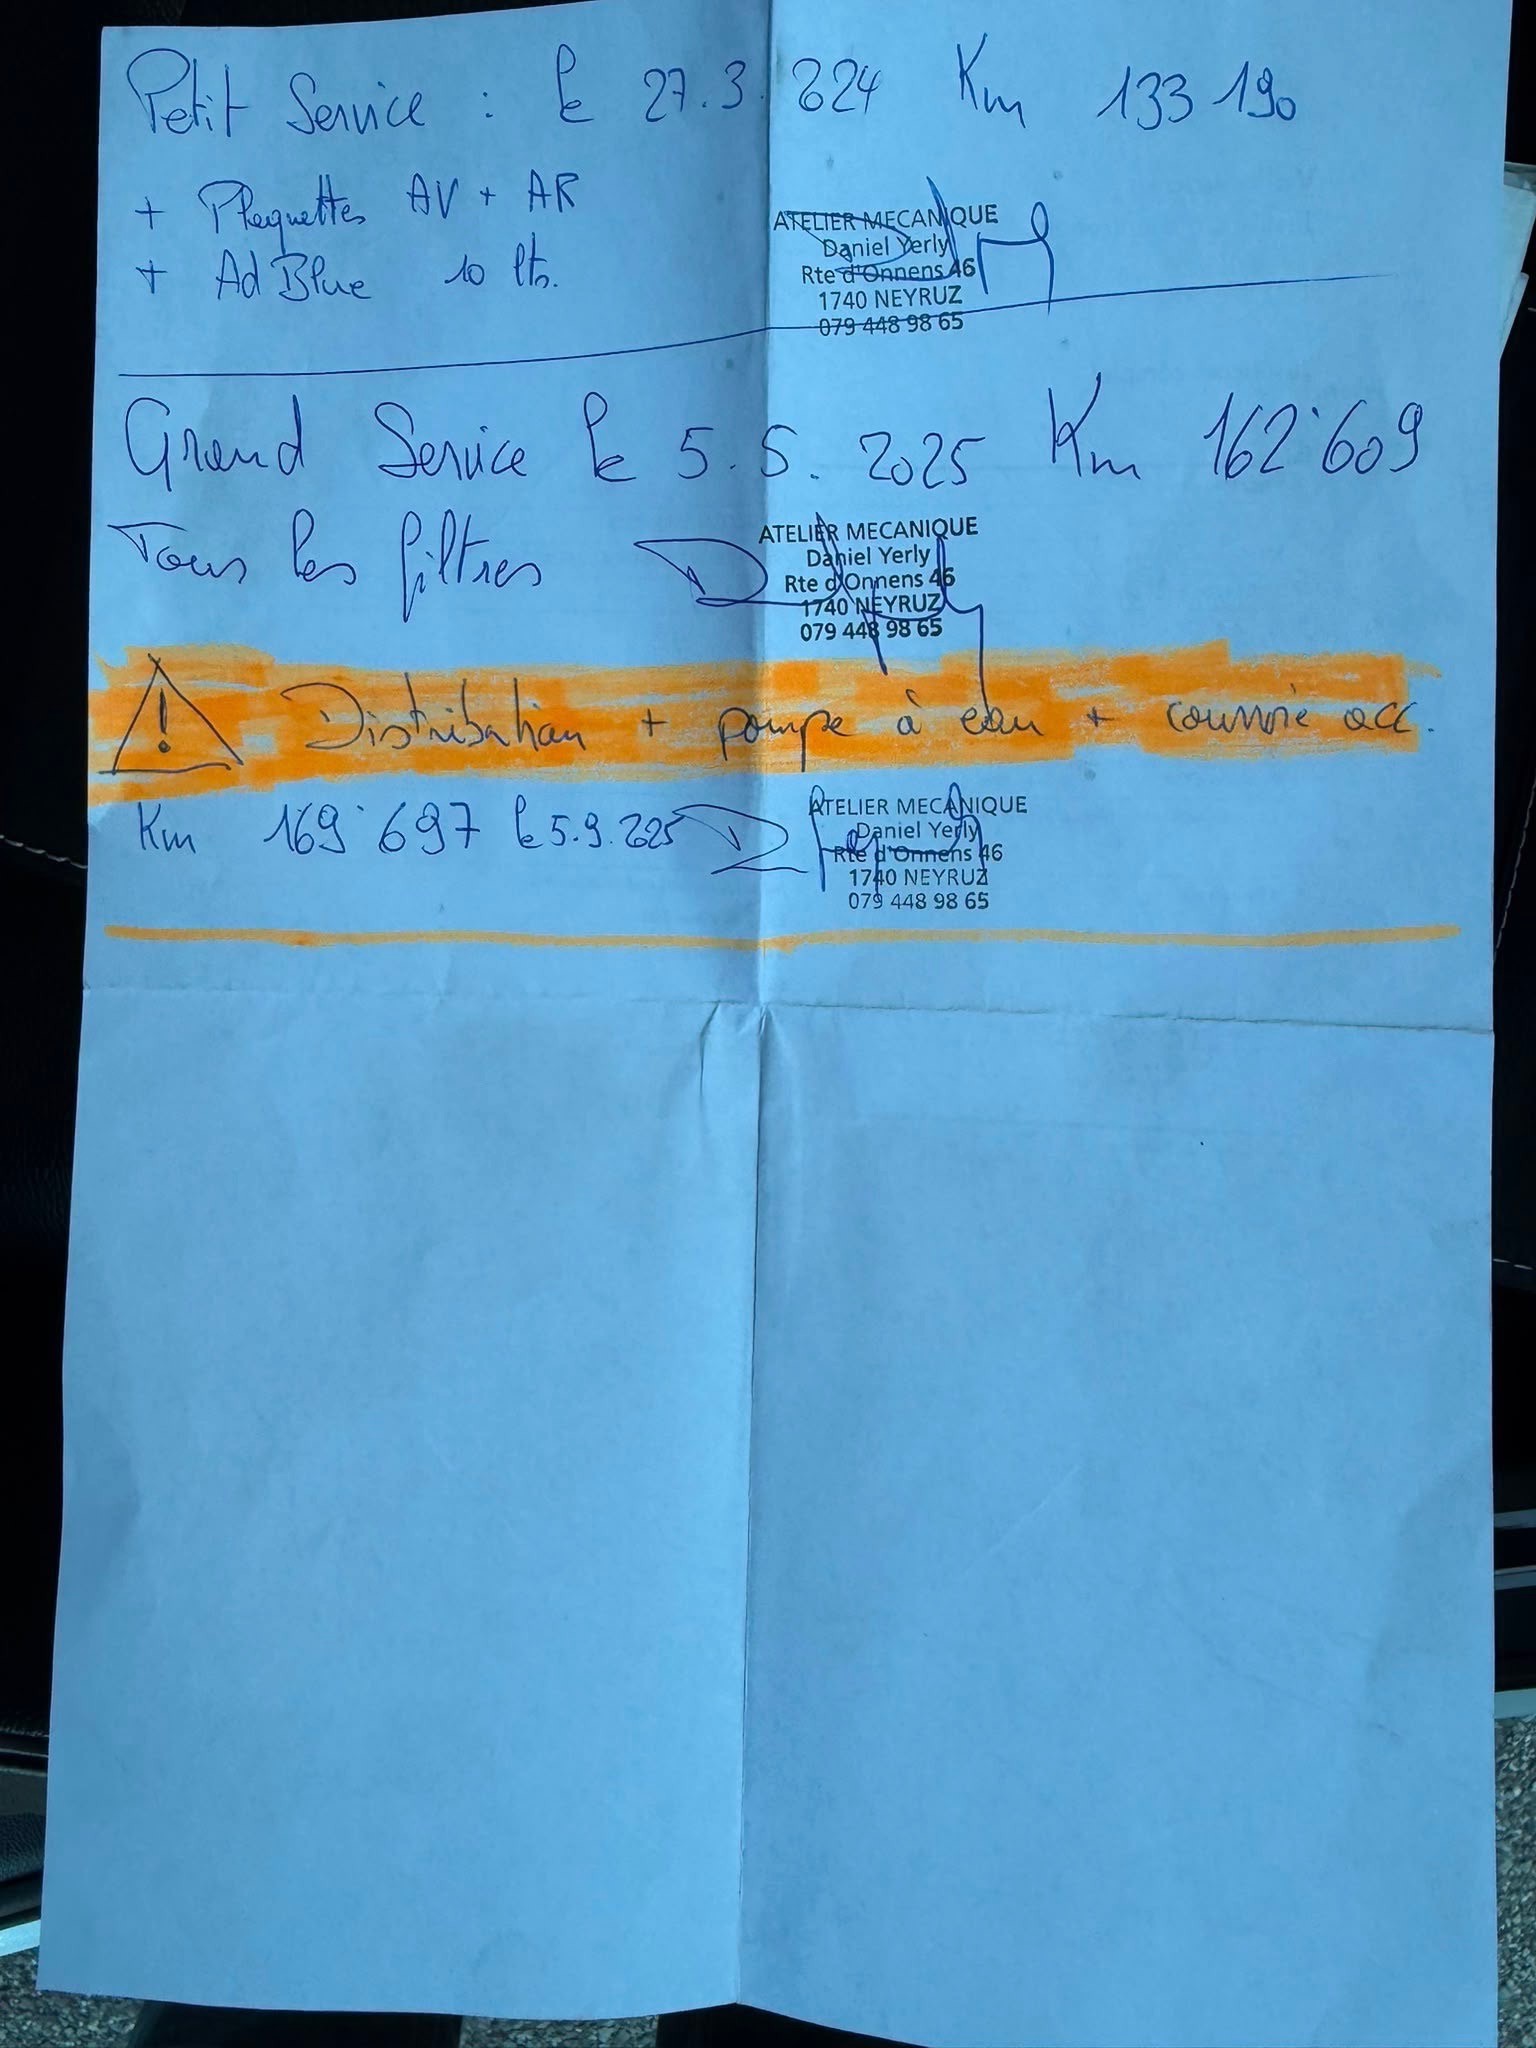 Petit Service : le 27.3.2024 Km 133 190
+ Plaquettes AV + AR
+ AdBlue 10 lts.
ATELIER MECANIQUE
Daniel Yerly
Rte d'Onnens 46
1740 NEYRUZ
079 448 98 65
Grand Service le 5.5.2025 Km 162'609
Tous les filtres
ATELIER MECANIQUE
Daniel Yerly
Rte d'Onnens 46
1740 NEYRUZ
079 448 98 65
! Distribution + pompe à eau + courroie acc.
Km 169'697 le 5.9.2025
ATELIER MECANIQUE
Daniel Yerly
Rte d'Onnens 46
1740 NEYRUZ
079 448 98 65